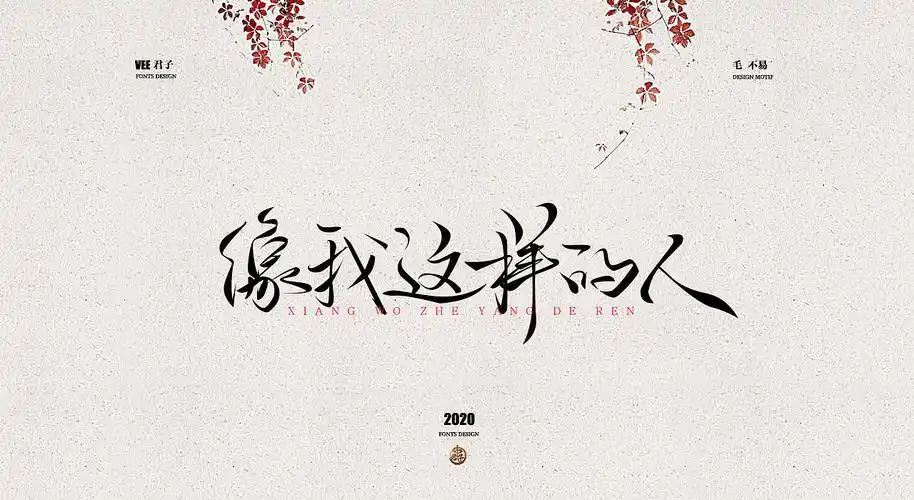 VEE 君子
FONTS DESIGN
毛 不易
DESIGN MOTIF
像我这样的人
XIANG WO ZHE YANG DE REN
2020
FONTS DESIGN